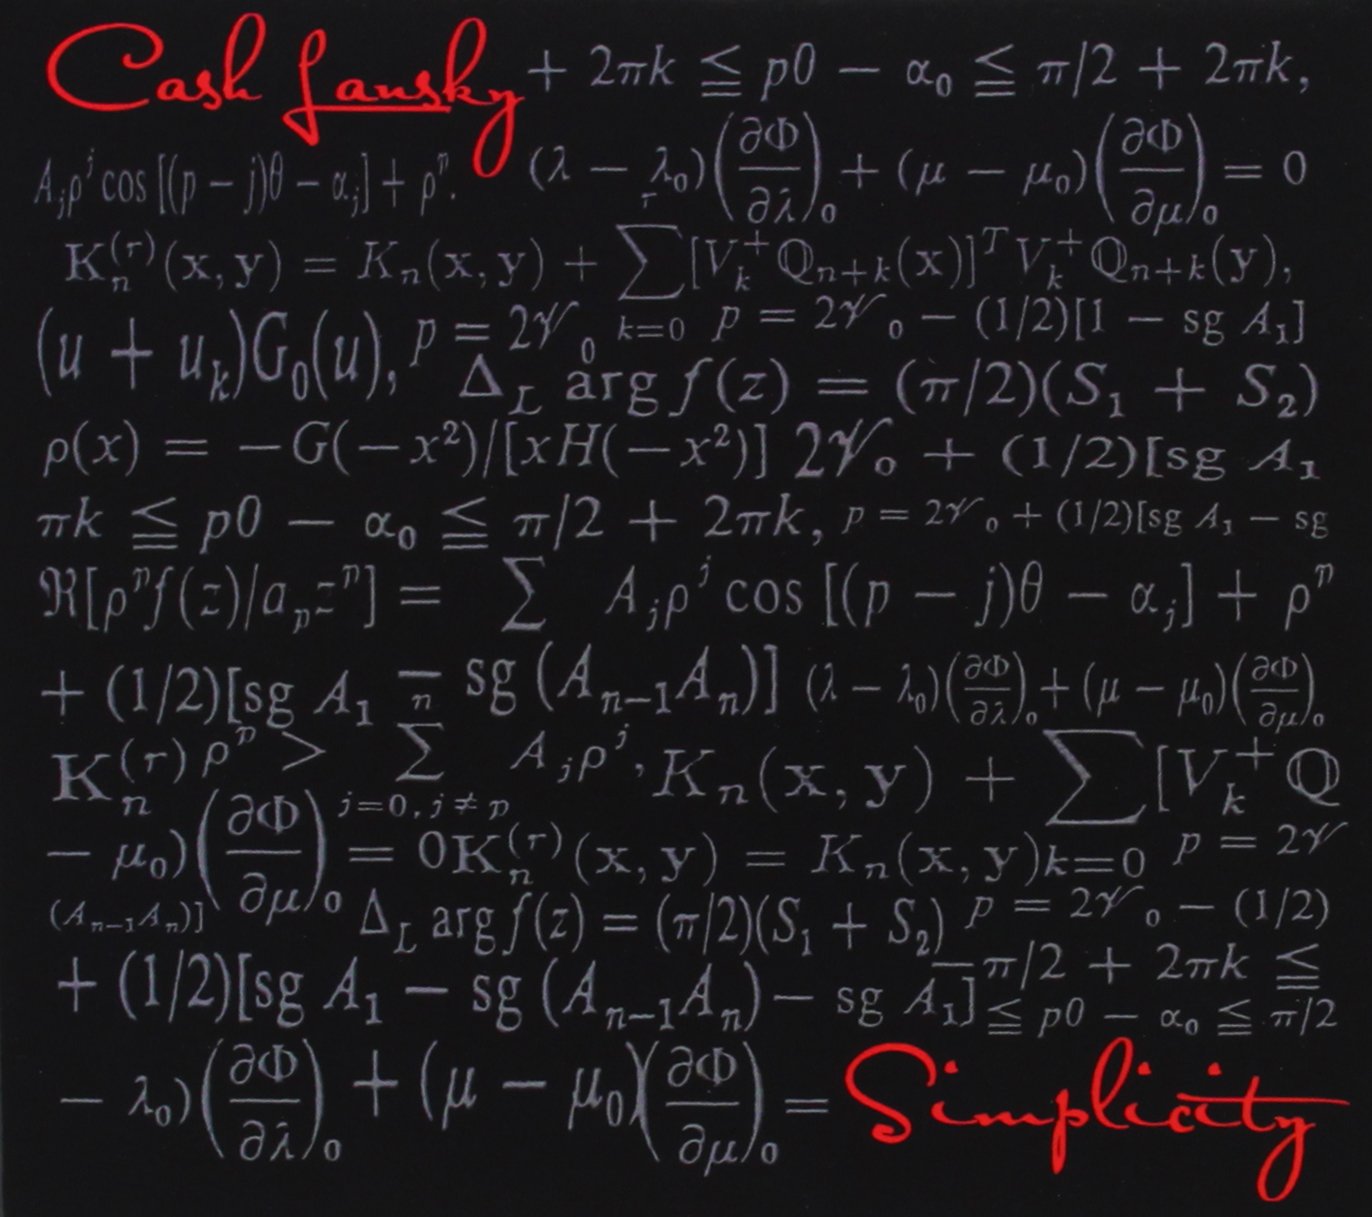 Cash Lansky + 2πk ≦ p0 − α₀ ≦ π/2 + 2πk,
Aⱼρʲ cos [(p − j)θ − αⱼ] + ρⁿ. (λ − λ₀)(∂Φ/∂λ)₀ + (μ − μ₀)(∂Φ/∂μ)₀ = 0
Kₙ⁽ʳ⁾(x, y) = Kₙ(x, y) + ∑ᵣ ₖ₌₀ [Vₖ⁺Qₙ₊ₖ(x)]ᵀ Vₖ⁺Qₙ₊ₖ(y),
(u + uₖ)G₀(u), p = 2𝒱₀ p = 2𝒱₀ − (1/2)[1 − sg A₁]
Δ_L arg f(z) = (π/2)(S₁ + S₂)
ρ(x) = −G(−x²)/[xH(−x²)] 2𝒱₀ + (1/2)[sg A₁
πk ≦ p0 − α₀ ≦ π/2 + 2πk, p = 2𝒱₀ + (1/2)[sg A₁ − sg
ℜ[ρᵖf(z)/aₚzᵖ] = ∑ Aⱼρʲ cos [(p − j)θ − αⱼ] + ρⁿ
+ (1/2)[sg A₁ − sg (Aₙ₋₁Aₙ)] (λ − λ₀)(∂Φ/∂λ)₀ + (μ − μ₀)(∂Φ/∂μ)₀
Kₙ⁽ʳ⁾ ρᵖ > ∑ⁿ j=0, j≠p Aⱼρʲ, Kₙ(x, y) + ∑ [Vₖ⁺Q
− μ₀)(∂Φ/∂μ)₀ = 0Kₙ⁽ʳ⁾(x, y) = Kₙ(x, y)k=0 p = 2𝒱
(Aₙ₋₁Aₙ)] Δ_L arg f(z) = (π/2)(S₁ + S₂) p = 2𝒱₀ − (1/2)
−π/2 + 2πk ≦
+ (1/2)[sg A₁ − sg (Aₙ₋₁Aₙ) − sg A₁] ≦ p0 − α₀ ≦ π/2
− λ₀)(∂Φ/∂λ)₀ + (μ − μ₀)(∂Φ/∂μ)₀ = Simplicity